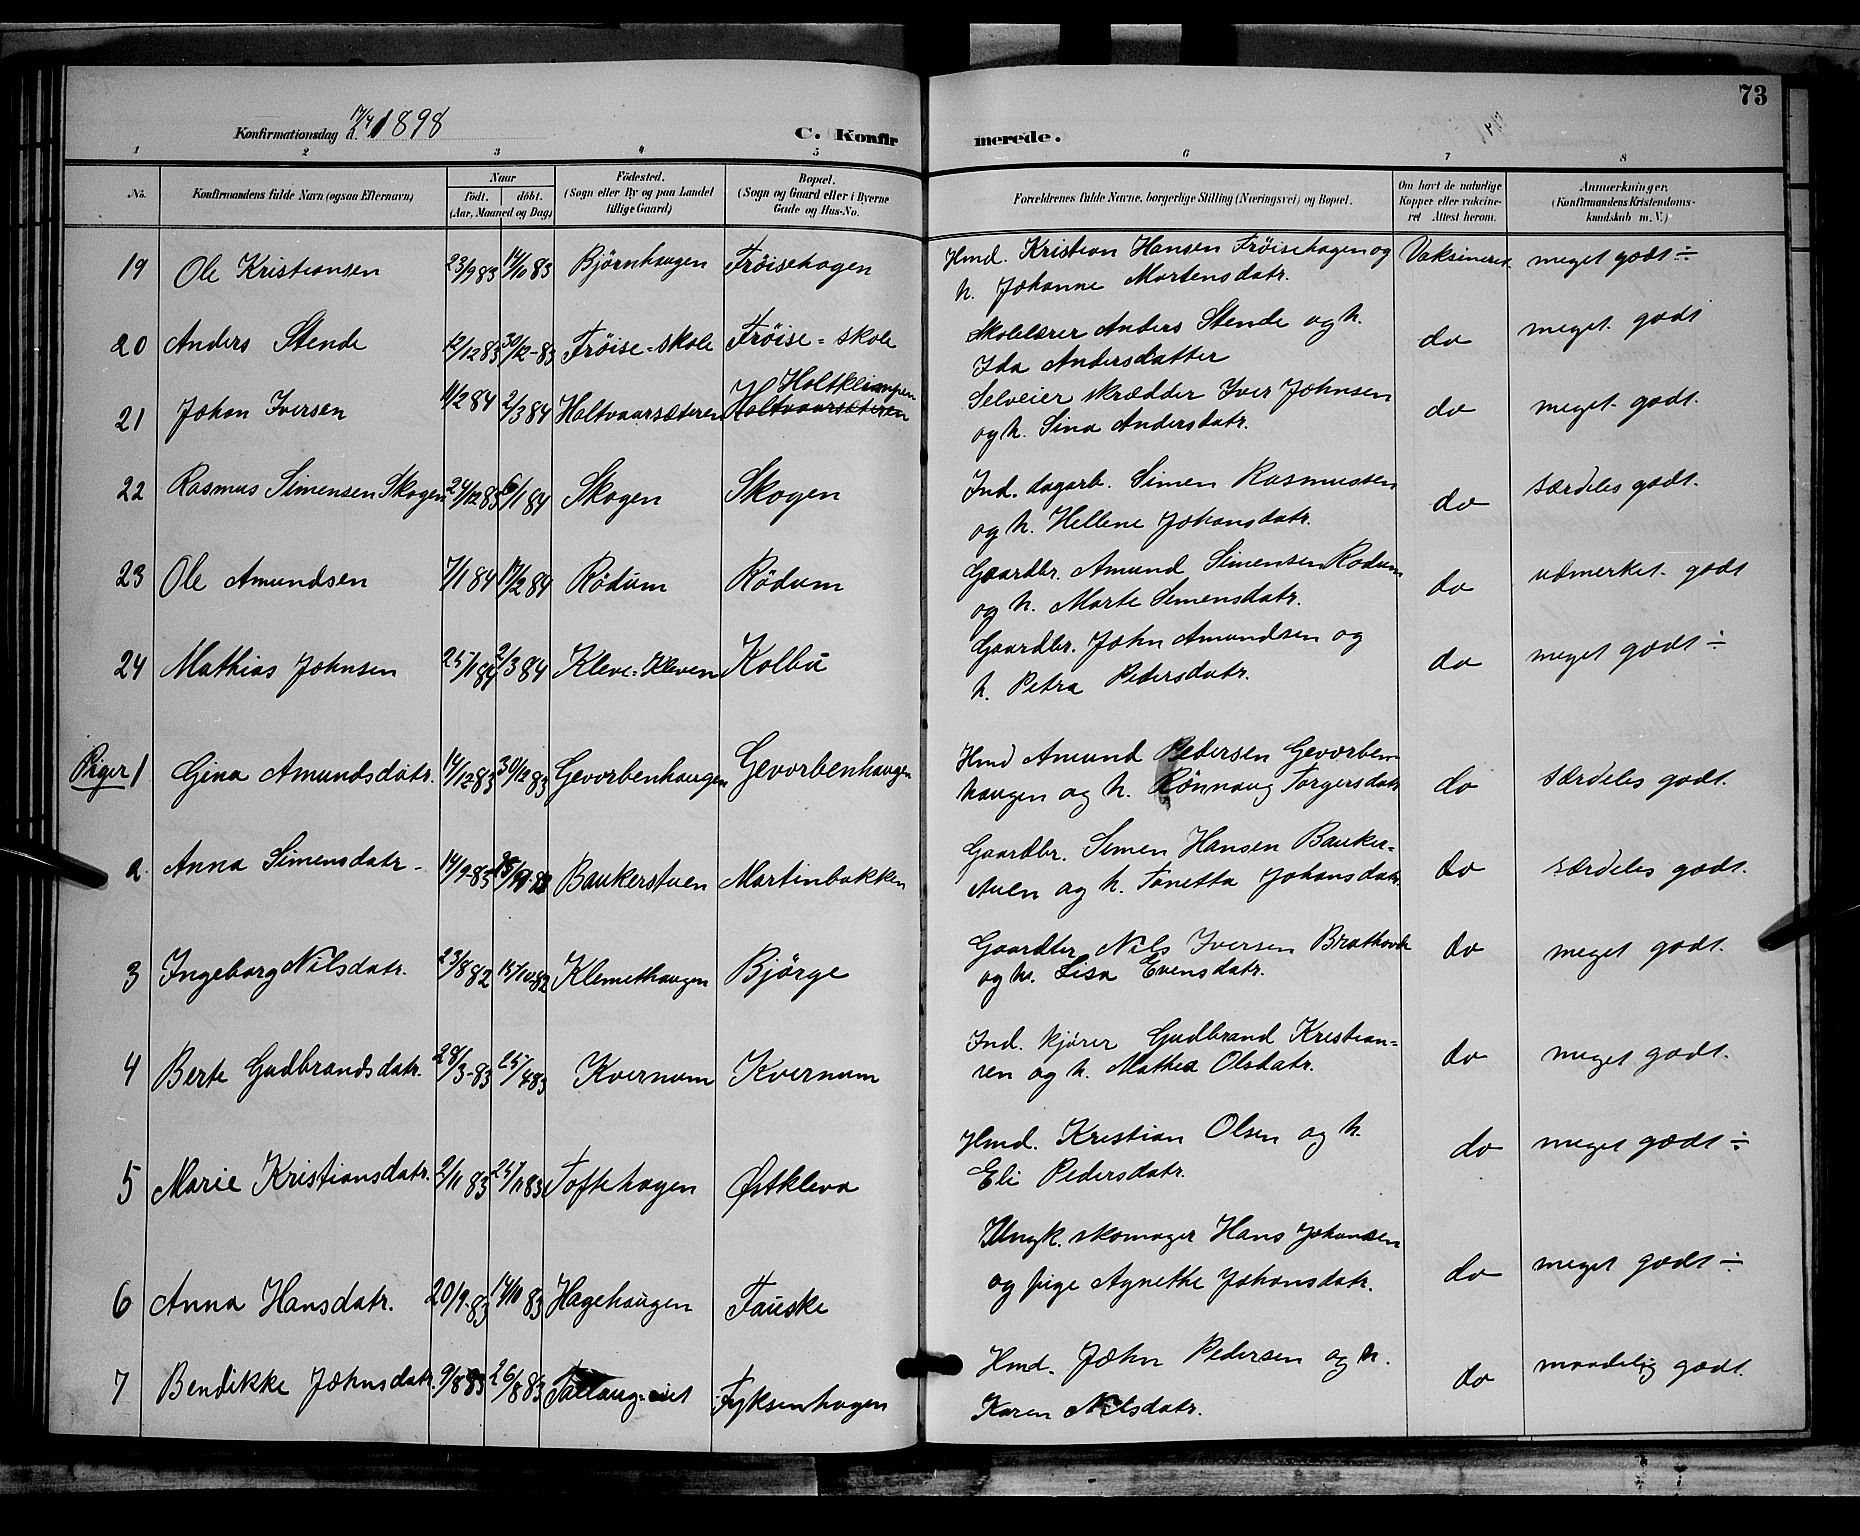 73
Konfirmationsdag 17/4 1898
C. Konfirmerede.
1 2 3 4 5 6 7 8
No. Konfirmandens fulde Navn (ogsaa Efternavn) Naar født. døbt. (Aar, Maaned og Dag) Fødested. (Sogn eller By og paa Landet tillige Gaard) Bopæl. (Sogn og Gaard eller i Byerne Gade og Hus-No. Forældrenes fulde Navne, borgerlige Stilling (Næringsvei) og Bopæl. Om havt de naturlige Kopper eller vaccineret Attest herom. Anmærkninger, (Konfirmandens Kristendomskundskab m. V.)
19 Ole Kristiansen 23/9 83 14/10 83 Bjørnhaugen Frøisehagen Hmd. Kristian Hansen Frøisehagen og Vaksineret meget godt ÷
h. Johanne Mortensdatr.
20 Anders Stende 12/12 83 30/12-83 Frøise-skole Frøise = skole Skolelærer Anders Stende og h. do meget godt
Ida Andersdatter
21 Johan Iversen 11/2 84 2/3 84 Holtvaarsæteren Holtvaarsæteren Holtklimpen Selveier skrædder Iver Johnsen do meget godt.
og h. Sina Andersdatr.
22 Rasmus Simensen Skogen 24/12 83 6/1 84 Skogen Skogen Ind. dagarb. Simen Rasmussen do særdeles godt.
og h. Hellene Johansdatr.
23 Ole Amundsen 7/1 84 17/2 84 Rödum Rödum Gaardbr. Amund Simensen Rodum do udmerket godt
og h. Marte Simensdatr.
24 Mathias Johnsen 25/1 84 2/3 84 Kleve-Kleven Kolbu Gaardbr. John Amundsen og do meget godt ÷
h. Petra Pedersdatr.
Piger 1 Gina Amundsdatr. 14/12 83 30/12 83 Gevorbenhaugen Gevorbenhaugen Hmd Amund Pedersen Gevorben- do særdeles godt.
haugen og h. Rønnaug Torgersdatr.
2 Anna Simensdatr. 14/9-83 Baukerstuen Martinbakken Gaardbr. Simen Hansen Bauker- do særdeles godt.
stuen og h. Tonetta Johansdatr.
3 Ingeborg Nilsdatr. 23/8 82 15/10 82 Klemethaugen Bjørge Nils Iversen do meget godt.
og h. Lisa Evensdatr.
4 Berte Gudbrandsdatr. 28/3-83 25/4 83 Kvernum Kvernum Ind. kjører Gudbrand Kristian- do meget godt.
sen og h. Mathea Olsdatr.
5 Marie Kristiansdatr. 2/11 83 25/11 83 Toftehagen Østkleva Hmd. Kristian Olsen og h. do meget godt ÷
Eli Pedersdatr.
6 Anna Hansdatr. 20/9-83 14/10 83 Hagehaugen Fauske Ungk. skomager Hans Johansen do meget godt ÷
og pige Agnethe Johansdatr.
7 Bendikke Johnsdatr. 9/8 83 26/8 83 Fyksenhagen Hmd. John Pedersen og h. do maadelig godt.
Karen Nilsdatr.